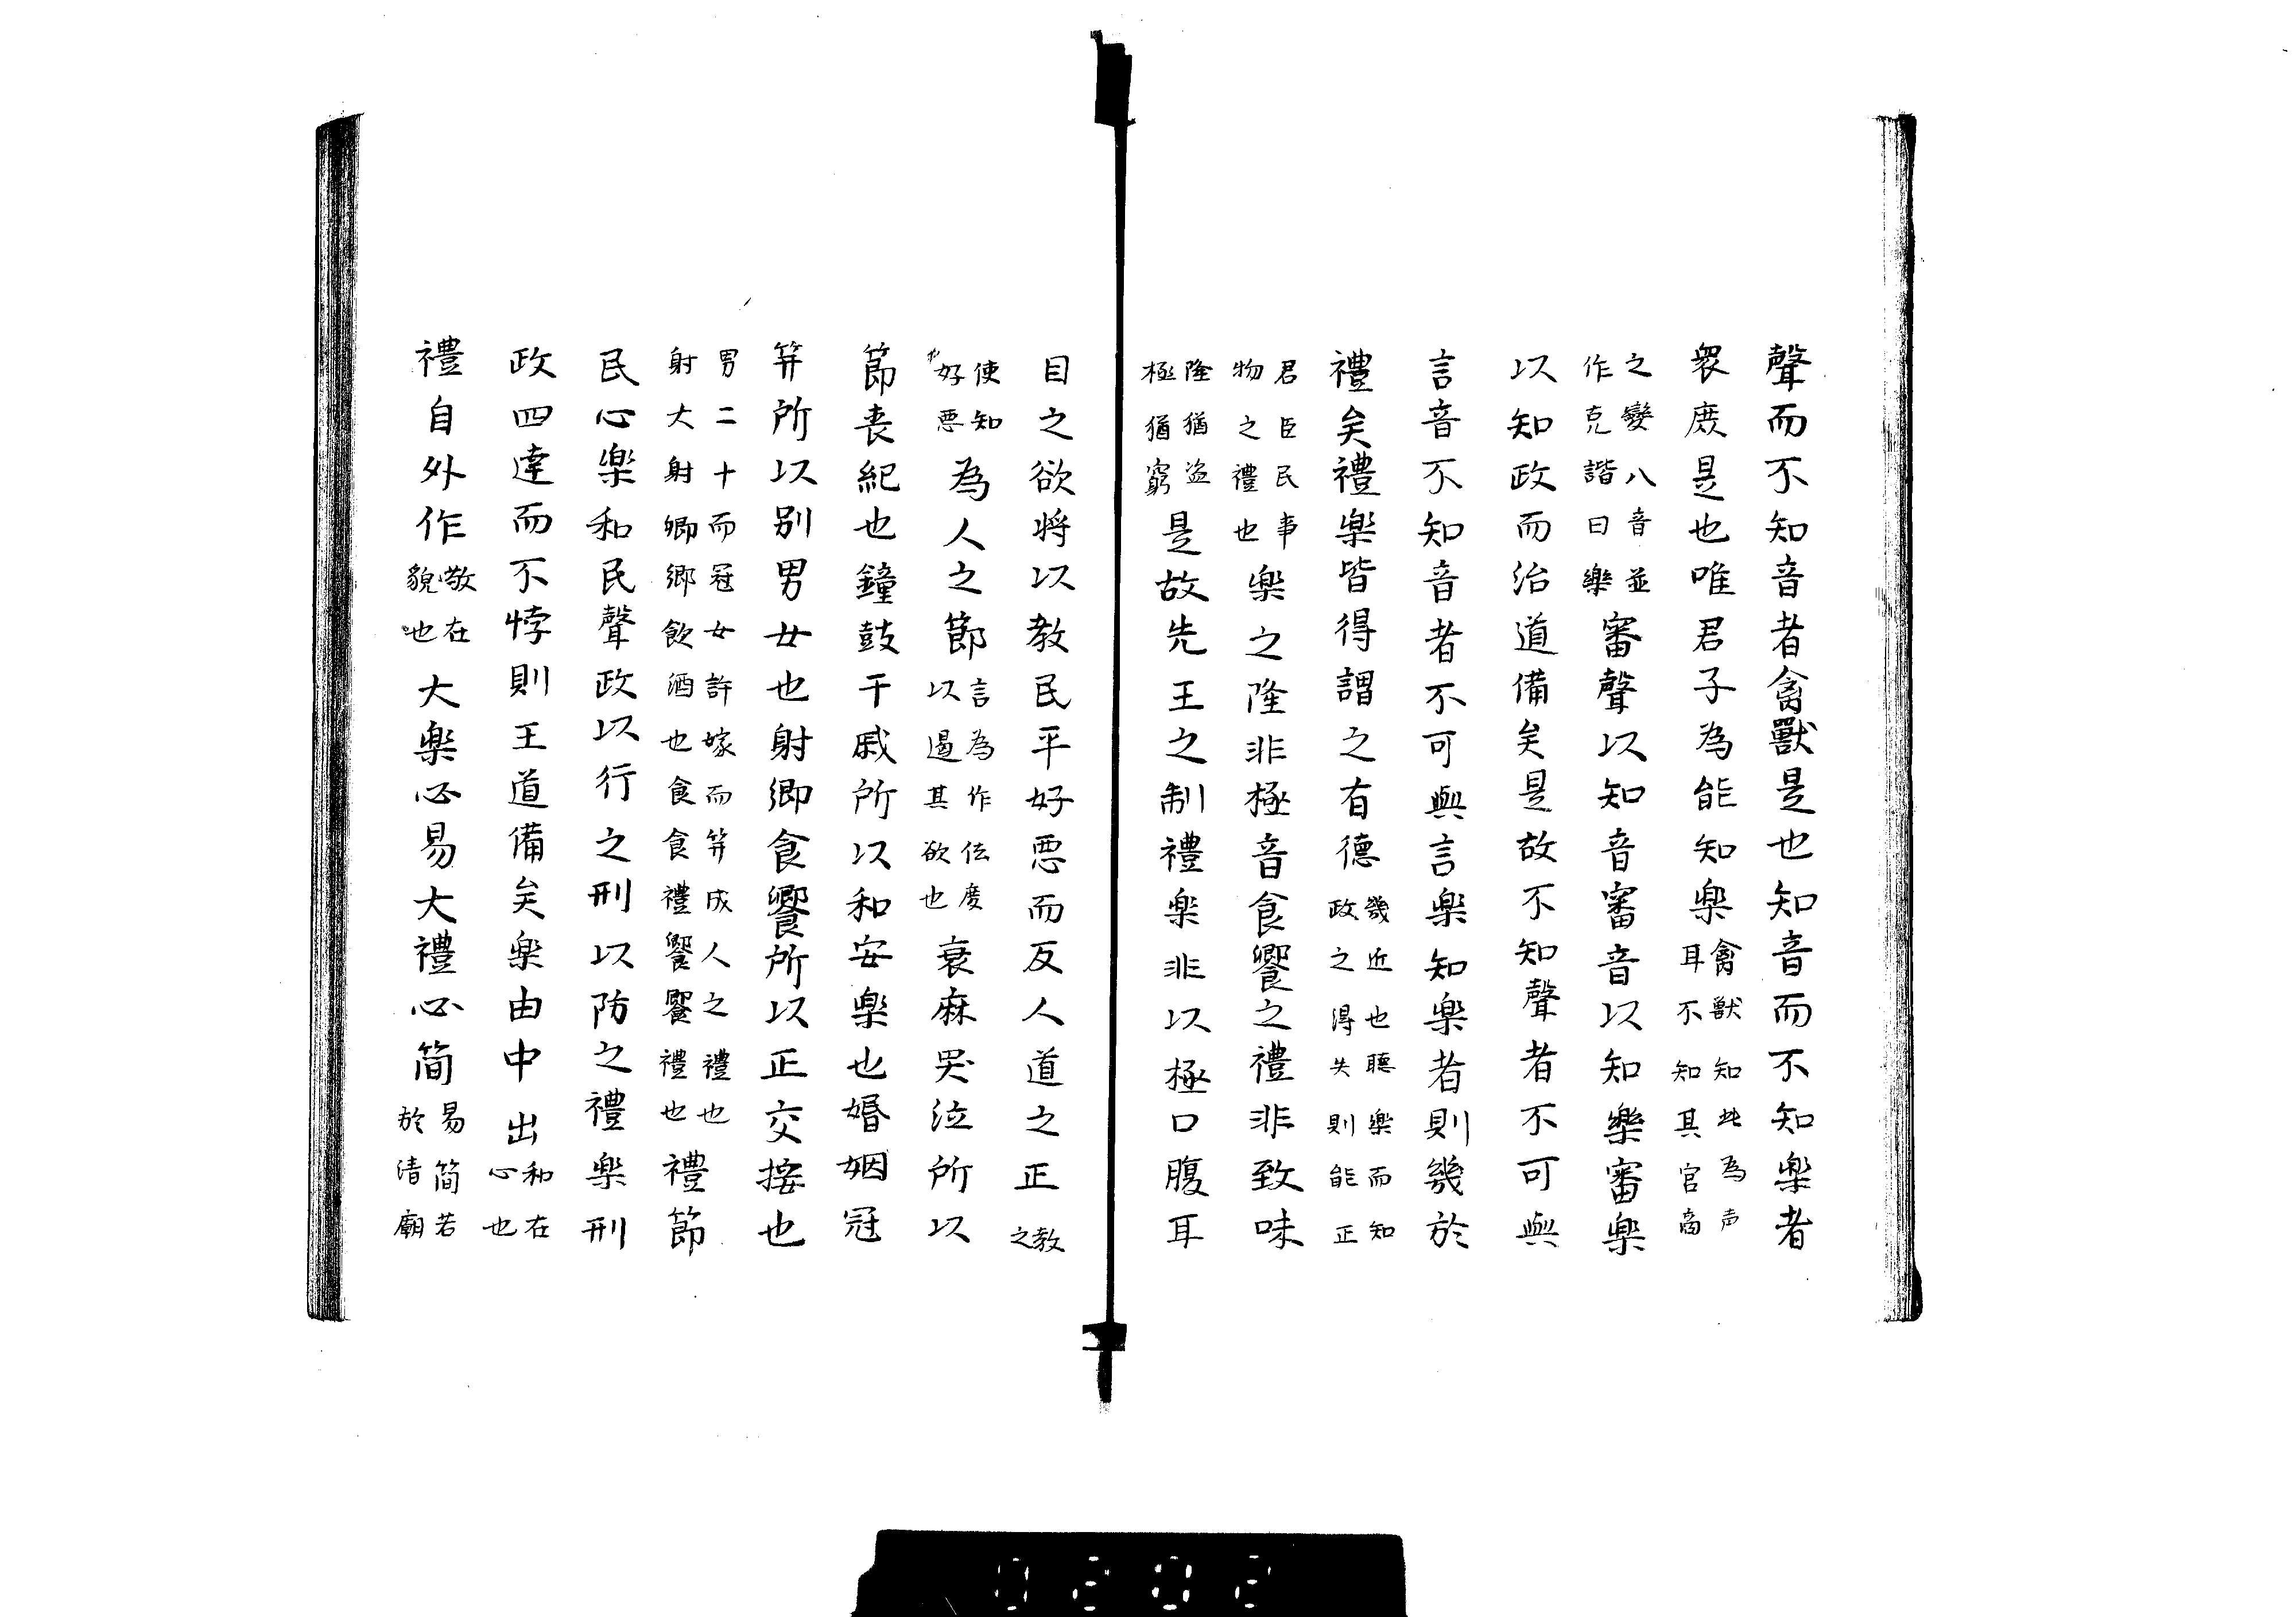 聲而不知音者禽獸是也知音而不知楽者
衆庶是也唯君子為能知楽禽獣知此為声耳不知其宮商
之變八音並作克諧曰樂審聲以知音審音以知樂審楽
以知政而治道備矣是故不知聲者不可與
言音不知音者不可與言楽知楽者則幾於
禮矣禮楽皆得謂之有德幾近也聴樂而知政之得失則能正
君臣民事物之禮也楽之隆非極音食饗之禮非致味
隆猶盗極猶窮是故先王之制禮楽非以極口腹耳
目之欲将以教民平好悪而反人道之正教之
使知好悪也為人之節言為作法度以遏其欲也衰麻哭泣所以
節喪紀也鐘鼓干戚所以和安楽也婚姻冠
笄所以別男女也射郷食饗所以正交接也
男二十而冠女許嫁而笄成人之禮也射大射郷郷飲酒也食食禮饗饗禮也禮節
民心楽和民聲政以行之刑以防之禮楽刑
政四達而不悖則王道備矣楽由中出和在心也
禮自外作敬在貌也大楽必易大禮必简易简若於清廟